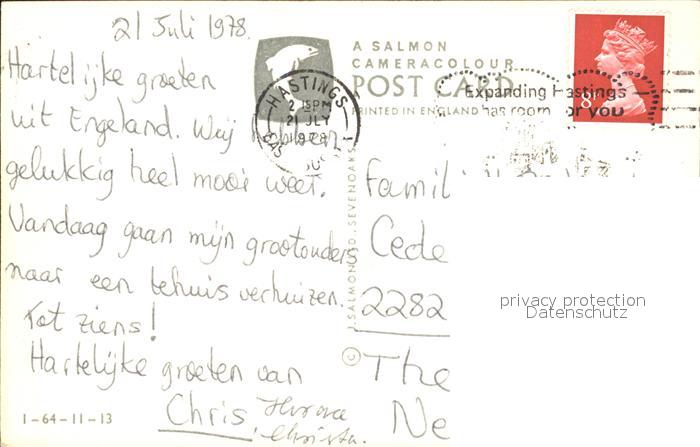 21 Juli 1978.
Hartelijke groeten
uit Engeland. Wij hebben
gelukkig heel mooi weer.
Vandaag gaan mijn grootouders
naar een tehuis verhuizen.
Tot ziens!
Hartelijke groeten van
Chris,
Christa.
1-64-11-13
A SALMON
CAMERACOLOUR
POST CARD
PRINTED IN ENGLAND
HASTINGS
2 15PM
21 JLY
1978
Expanding Hastings
has room for you
8½P
J. SALMON LTD. SEVENOAKS
©
Famil
Cede
2282
The
Ne
privacy protection
Datenschutz